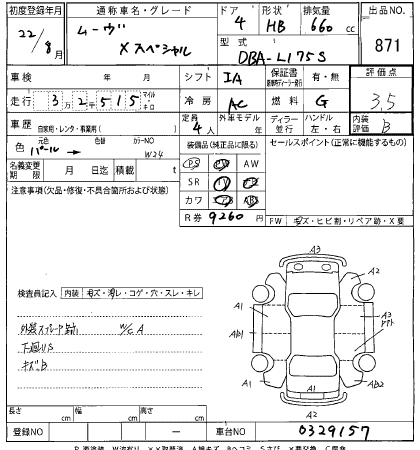 初度登録年月 通称車名・グレード ドア 形状 排気量 出品NO.
22/8月 ムーヴ 4 HB 660 cc
Xスペシャル 型式 871
DBA-L175S
車検 年 月 シフト IA 保証書 有・無 評価点
走行 3万2千515 マイル・キロ 冷房 AC 燃料 G 3.5
車歴 自家用・レンタ・事業用( ) 定員 4人 外車モデル 年 ディーラー 並行 ハンドル 左・右 内装評価 B
色 元色 パール → 色替 カラーNO W24 装備品(純正品に限る) セールスポイント(正常に機能するもの)
PS PW AW
名義変更期限 月 日迄 積載 t SR TV
注意事項(欠品・修復・不具合箇所および状態) カワ ナビ ABS
R券 9260 円 FW キズ・ヒビ割・リペア跡・X要
A3
A2
検査員記入 内装 キズ・汚レ・コゲ・穴・スレ・キレ
A1 A1 A3
外装スプレー
W/C A
Ab1
下廻りS
キズB
A1 A1 Ab2
A2
長さ cm 幅 cm 高さ cm
登録NO 車台NO 0329157